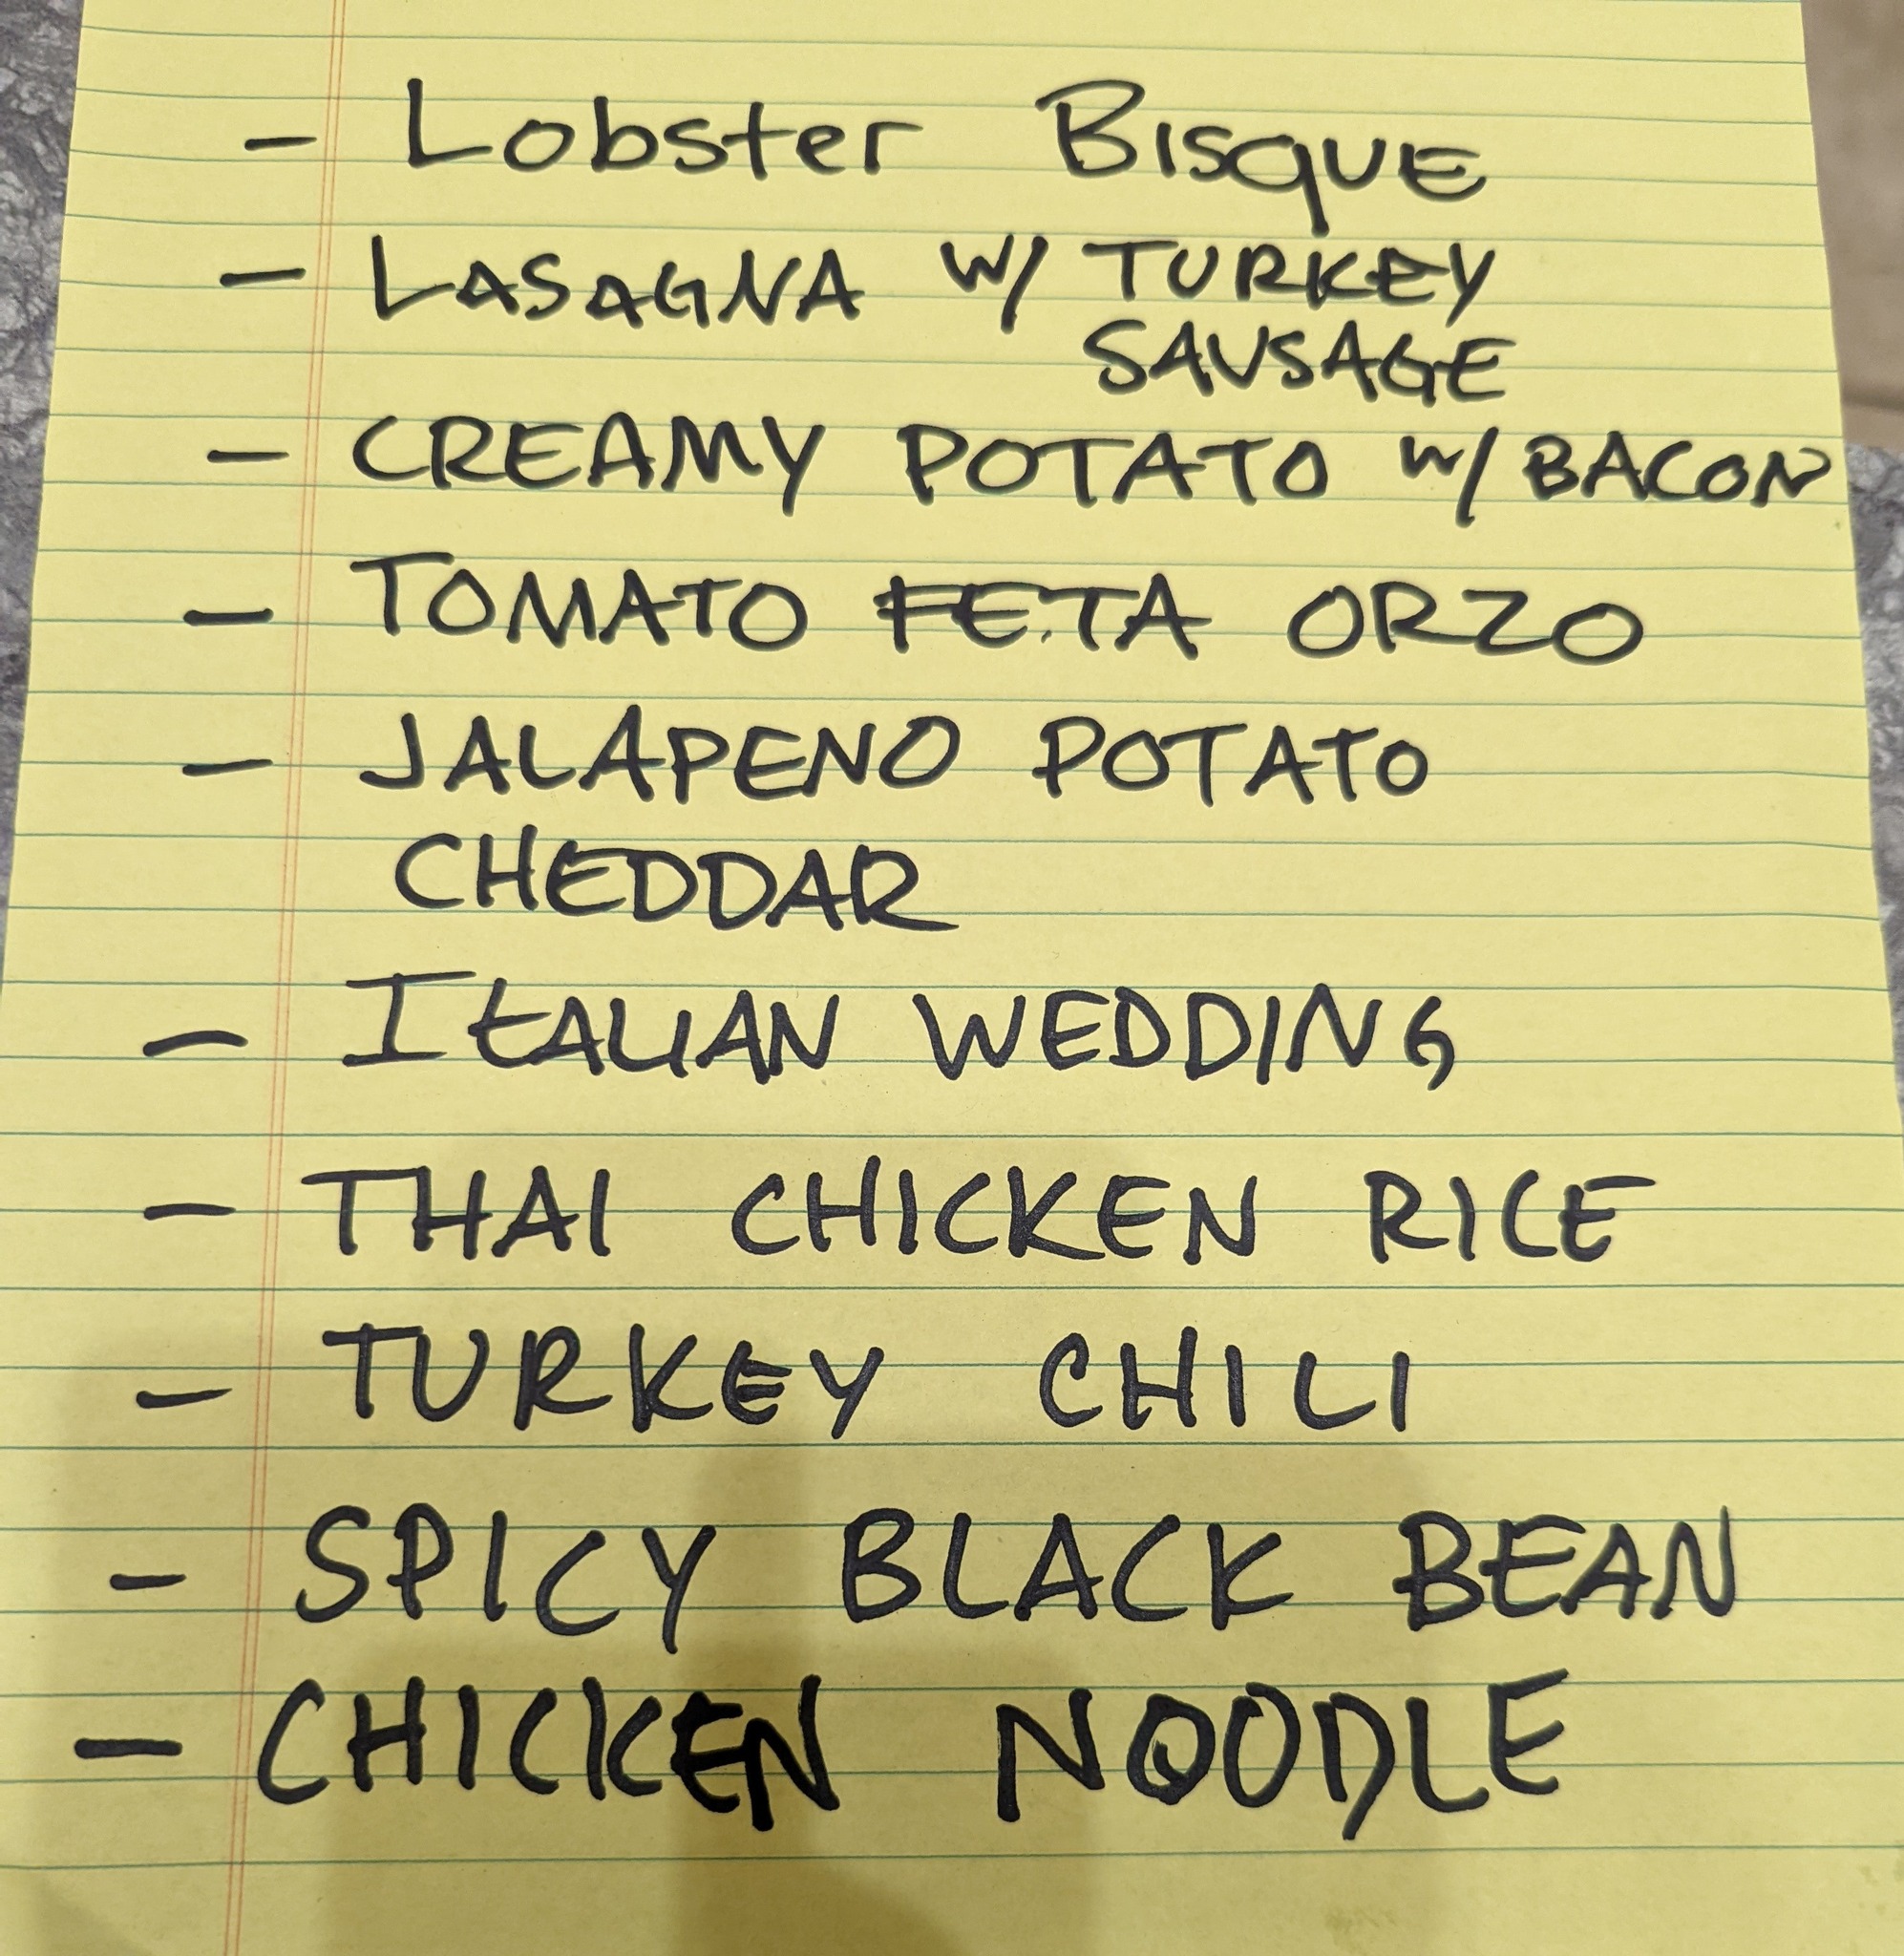 - Lobster Bisque
- LASAGNA w/ TURKEY
SAUSAGE
- CREAMY POTATO w/ BACON
- TOMATO FETA ORZO
- JALAPENO POTATO
CHEDDAR
- ITALIAN WEDDING
- THAI CHICKEN RICE
- TURKEY CHILI
- SPICY BLACK BEAN
- CHICKEN NOODLE